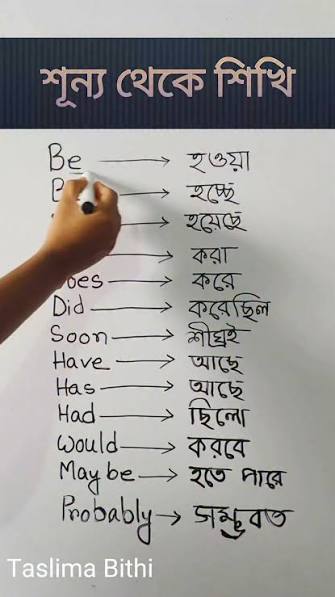 শূন্য থেকে শিখি
Be → হওয়া
B → হচ্ছে
→ হয়েছে
→ করা
oes → করে
Did → করেছিল
Soon → শীঘ্রই
Have → আছে
Has → আছে
Had → ছিলো
Would → করবে
May be → হতে পারে
Probably → সম্ভবত
Taslima Bithi